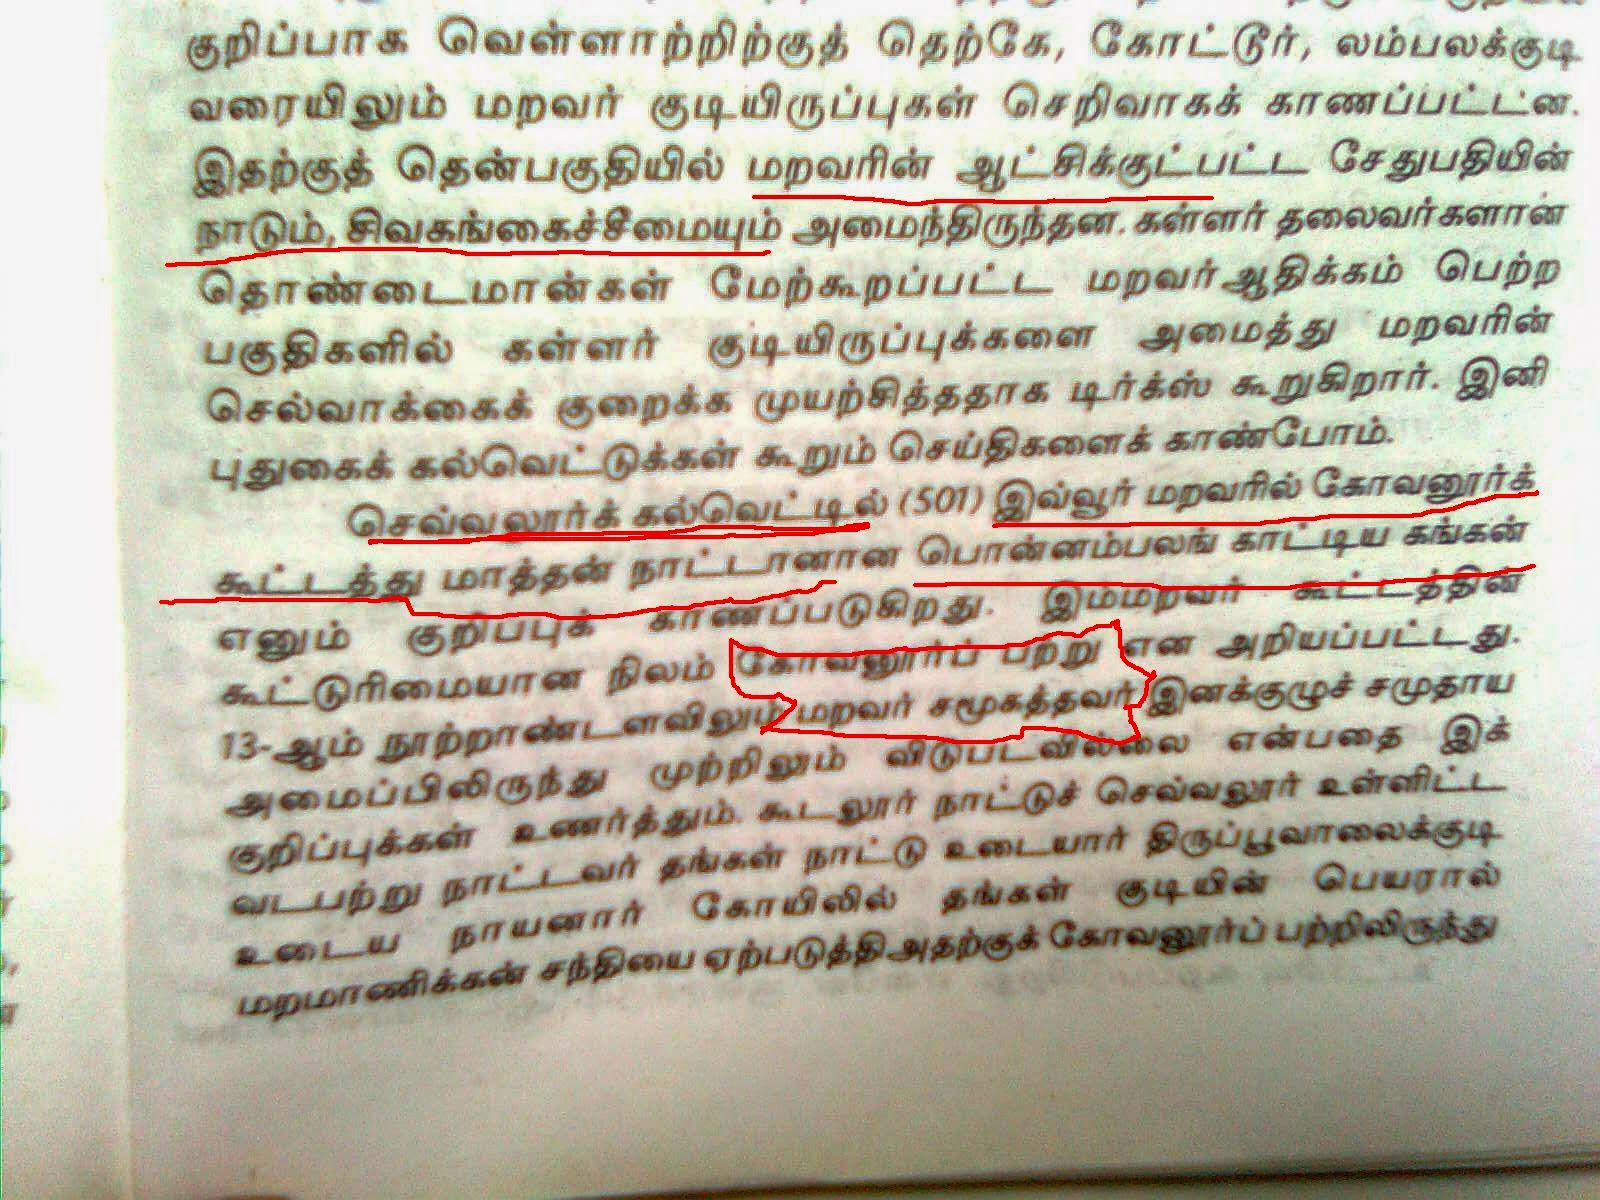 குறிப்பாக வெள்ளாற்றிற்குத் தெற்கே, கோட்டூர், லம்பலக்குடி
வரையிலும் மறவர் குடியிருப்புகள் செறிவாகக் காணப்பட்டன.
இதற்குத் தென்பகுதியில் மறவரின் ஆட்சிக்குட்பட்ட சேதுபதியின்
நாடும், சிவகங்கைச்சீமையும் அமைந்திருந்தன. கள்ளர் தலைவர்களான
தொண்டைமான்கள் மேற்கூறப்பட்ட மறவர்ஆதிக்கம் பெற்ற
பகுதிகளில் கள்ளர் குடியிருப்புக்களை அமைத்து மறவரின்
செல்வாக்கைக் குறைக்க முயற்சித்ததாக டிர்க்ஸ் கூறுகிறார். இனி
புதுகைக் கல்வெட்டுக்கள் கூறும் செய்திகளைக் காண்போம்.
செவ்வலூர்க் கல்வெட்டில் (501) இவ்வூர் மறவரில் கோவனூர்க்
கூட்டத்து மாத்தன் நாட்டானான பொன்னம்பலங் காட்டிய கங்கன்
எனும் குறிப்புக் காணப்படுகிறது. இம்மறவர் கூட்டத்தின்
கூட்டுரிமையான நிலம் கோவனூர்ப் பற்று என அறியப்பட்டது.
13-ஆம் நூற்றாண்டளவிலும் மறவர் சமூகத்தவர் இனக்குழுச் சமுதாய
அமைப்பிலிருந்து முற்றிலும் விடுபடவில்லை என்பதை இக்
குறிப்புக்கள் உணர்த்தும். கூடலூர் நாட்டுச் செவ்வலூர் உள்ளிட்ட
வடபற்று நாட்டவர் தங்கள் நாட்டு உடையார் திருப்பூவாலைக்குடி
உடைய நாயனார் கோயிலில் தங்கள் குடியின் பெயரால்
மறமாணிக்கன் சந்தியை ஏற்படுத்திஅதற்குக் கோவனூர்ப் பற்றிலிருந்து